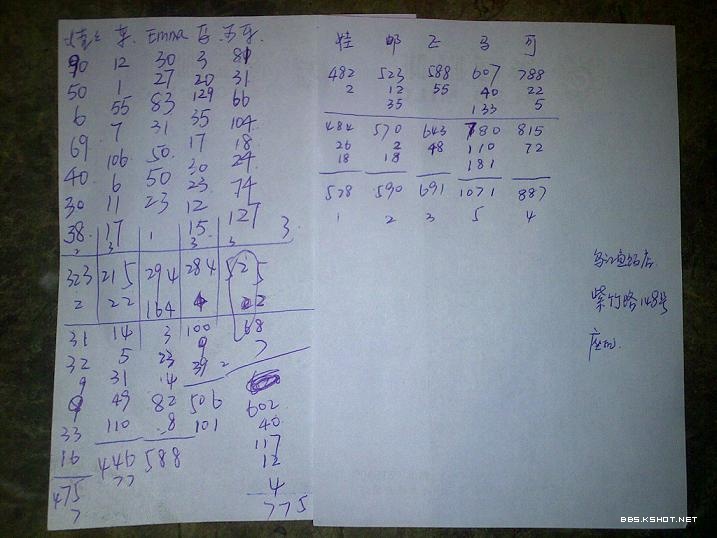 Emma
90 12 30 3 81
50 1 27 20 31
6 55 83 129 66
69 7 31 35 104
40 106 50 17 18
30 6 50 30 24
38 11 23 23 74
17 1 12 127
15 3
2 3 3 3
323 215 294 284 525
2 22 164 4 22
31 14 3 100 68
32 5 23 9 7
9 31 14 39 2
9 49 82 506 602
33 110 8 101 40
16 446 588 117
475 77 12
7 4
775
娃 邮 Z 马 可
482 523 588 607 788
2 12 55 40 22
35 133 5
484 570 643 780 815
26 2 48 110 72
18 18 181
528 590 691 1071 887
1 2 3 5 4
紫竹路148号
BBS.KSHOT.NET